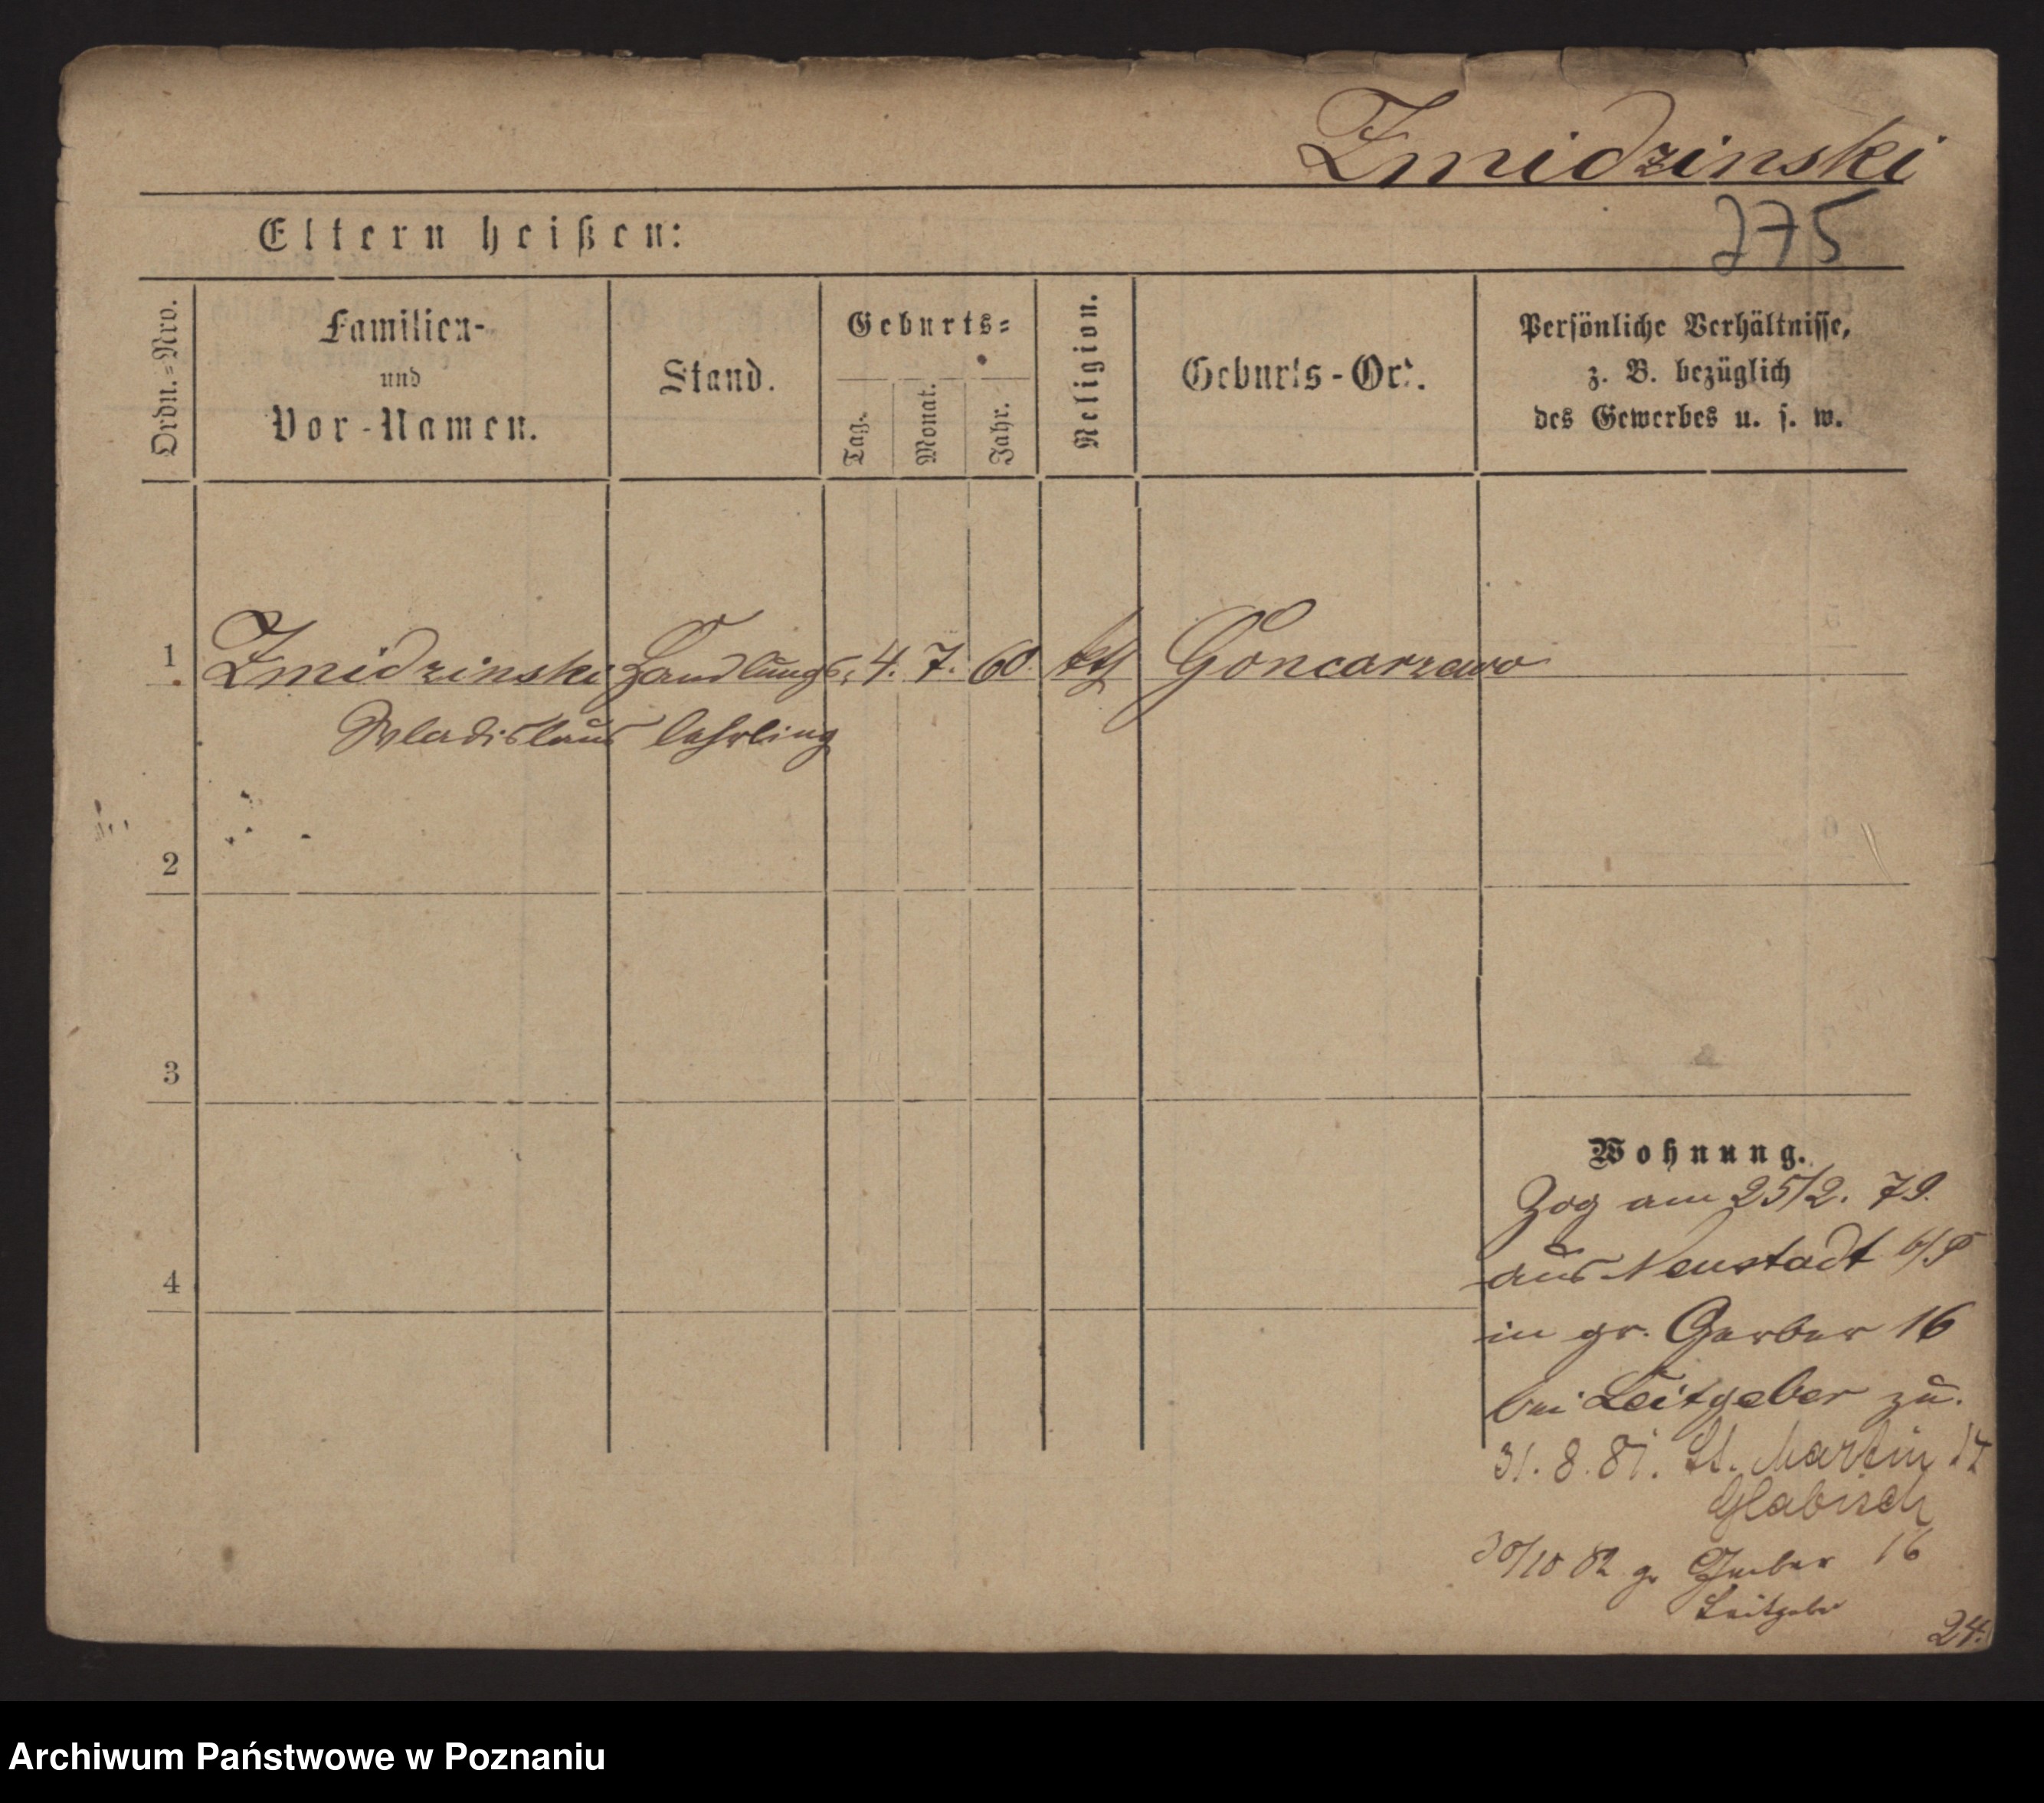 Zmidzinski
775
Eltern heißen:
Ordn.=Nro.
Familien-
und
Vor-Namen.
Stand.
Geburts=
Tag.
Monat.
Jahr.
Religion.
Geburts-Ort.
Persönliche Verhältnisse,
z. B. bezüglich
des Gewerbes u. s. w.
1 Zmidzinski Handlungs- 4. 7. 60. kth Goncarzewo
Wladislaus lehrling
2
3
4
Wohnung.
Zog am 25/2. 79.
aus Neustadt b/P
in gr. Gerber 16
bei Leitgeber zu.
31. 8. 81. St. Martin 17
Glabisch
30/10 82 gr Gerber 16
Leitgeber
24.
Archiwum Państwowe w Poznaniu